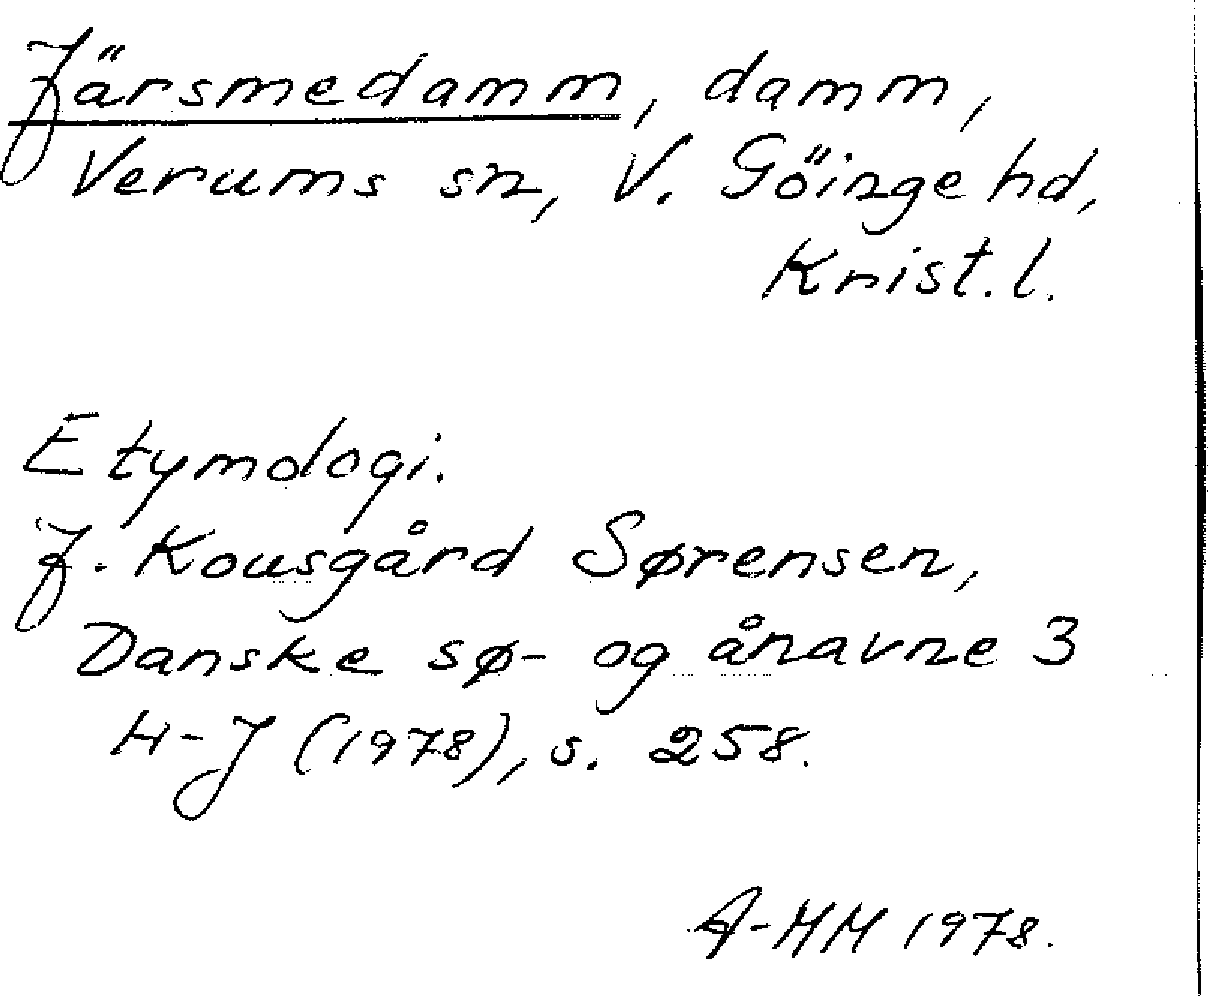 Järsmedamm, damm,
Verums sn, V. Göinge hd,
Krist. l.
Etymologi.
J. Kousgård Sørensen,
Danske sø- og ånavne 3
H-J (1978), s. 258.
A-MM 1978.